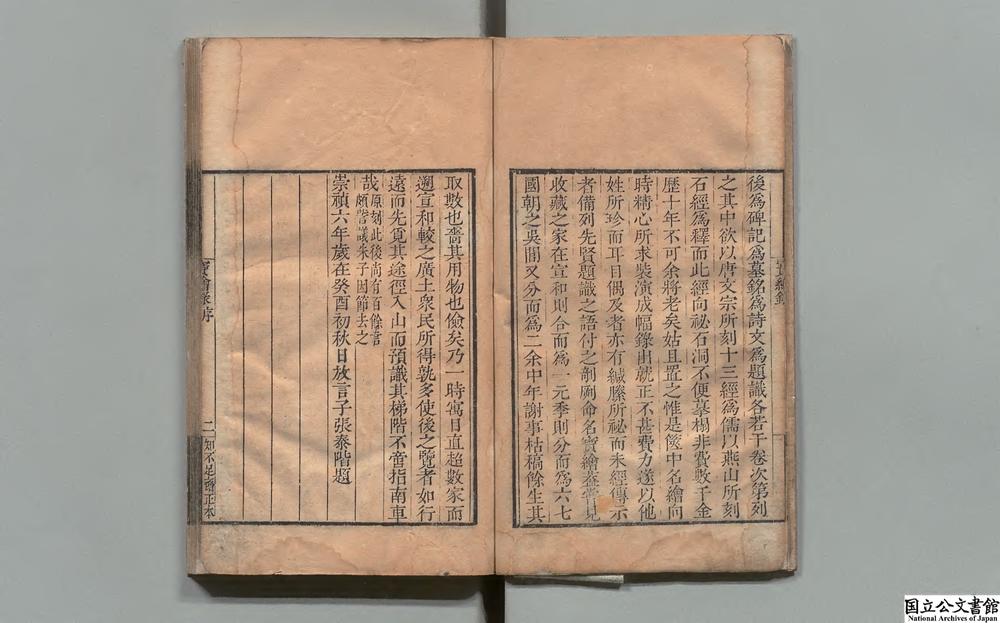 寶繪錄
後爲碑記爲墓銘爲詩文爲題識各若干卷次第列
之其中欲以唐文宗所刻十三經爲儒以燕山所刻
石經爲釋而此經向祕石洞不便摹搨非費數千金
歷十年不可余將老矣姑且置之惟是篋中名繪向
時精心所求裝演成幅錄出就正不甚費力遂以他
姓所珍而耳目偶及者亦有緘縢所祕而未經傳示
者備列先賢題識之語付之剞劂命名寶繪葢嘗見
收藏之家在宣和則合而爲一元季則分而爲六七
國朝之吳閶又分而爲二余中年謝事枯稿餘生其
取數也嗇其用物也儉矣乃一時寓目直超數家而
遡宣和較之廣土衆民所得孰多使後之覽者如行
遠而先覓其途徑入山而預識其梯階不啻指南車
哉
原刻此後尚有百餘言
頗訾議朱子因節去之
崇禎六年歲在癸酉初秋日放言子張泰階題
寶繪錄序
二
知不足齋正本
国立公文書館
National Archives of Japan